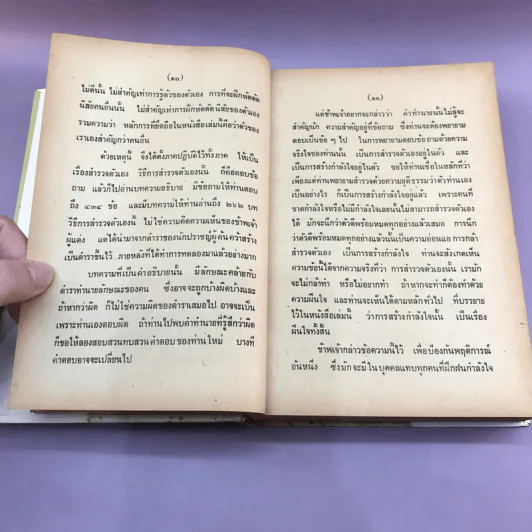 (๑๐)
ไม่ดีนั้น ไม่สำคัญเท่าการรู้ตัวของตัวเอง การที่จะฝึกหัดดัด
นิสัยคนอื่นนั้น ไม่สำคัญเท่าการฝึกหัดดัดนิสัยของตัวเอง
รวมความว่า หลักการที่ยึดถือในหนังสือเล่มนี้คือว่าตัวของ
เราเองสำคัญกว่าคนอื่น
ด้วยเหตุนี้ จึงได้ตั้งภาคปฏิบัติไว้ทั้งภาค ให้เป็น
เรื่องสำรวจตัวเอง วิธีการสำรวจตัวเองนั้น ก็คือตอบข้อ
ถาม แล้วก็ไปอ่านบทความอธิบาย มีข้อถามให้ท่านตอบ
ถึง ๔๓๔ ข้อ และมีบทความให้ท่านอ่านถึง ๒๒๒ บท
วิธีการสำรวจตัวเองนั้น ไม่ใช่ความคิดความเห็นของข้าพเจ้า
ผู้แต่ง แต่ได้นำมาจากตำราของนักปราชญ์ผู้ค้นคว้าสร้าง
เป็นตำราขึ้นไว้ ภายหลังที่ได้ทำการทดลองมาแล้วอย่างมาก
บทความที่เป็นคำอธิบายนั้น มีลักษณะคล้ายกับ
ตำราทำนายลักษณะของคน ซึ่งอาจจะถูกบ้างผิดบ้างและ
ถ้าหากว่าผิด ก็ไม่ใช่ความผิดของตำราเสมอไป อาจจะเป็น
เพราะท่านเองตอบผิด ถ้าท่านไปพบคำทำนายที่รู้สึกว่าผิด
ก็ขอให้ลองสอบสวนทบสวน คำตอบของท่านใหม่ บางที
คำตอบอาจจะเปลี่ยนไป
(๑๑)
แต่ข้าพเจ้าอยากจะกล่าวว่า คำทำนายนั้นไม่สู้จะ
สำคัญนัก ความสำคัญอยู่ที่ข้อถาม ซึ่งท่านจะต้องพยายาม
ตอบเป็นข้อ ๆ ไป ในการพยายามตอบข้อถามด้วยความ
จริงใจของท่านนั้น เป็นการสำรวจตัวเองอยู่ในตัว และ
เป็นการสร้างกำลังใจอยู่ในตัว ขอให้ท่านเชื่อในหลักที่ว่า
เพียงแต่ท่านพยายามสำรวจตัวความยุติธรรมว่าตัวท่านเอง
เป็นอย่างไร ก็เป็นการสร้างกำลังใจอยู่แล้ว เพราะคนที่
ขาดกำลังใจหรือไม่มีกำลังใจเลยนั้นไม่สามารถสำรวจตัวเอง
ได้ มักจะนึกว่าตัวดีพร้อมหมดทุกอย่างแล้วเสมอ การนึก
ว่าตัวดีพร้อมหมดทุกอย่างแล้วนั้นเป็นความอ่อนแอ การกล้า
สำรวจตัวเอง เป็นการสร้างกำลังใจ ท่านจะสังเกตเห็น
ความข้อนี้ได้จากความจริงที่ว่า การสำรวจตัวเองนั้น เรามัก
จะไม่กล้าทำ หรือไม่อยากทำ ถ้าหากจะทำก็ต้องทำด้วย
ความฝืนใจ และท่านจะเห็นได้ตามหลักทั่วไป ที่บรรยาย
ไว้ในหนังสือเล่มนี้ ว่าการสร้างกำลังใจนั้น เป็นเรื่อง
ฝืนใจทั้งสิ้น
ข้าพเจ้ากล่าวข้อความนี้ไว้ เพื่อป้องกันพฤติการณ์
อันหนึ่ง ซึ่งมักจะมีในบุคคลแทบทุกคนที่ฝึกฝนกำลังใจ